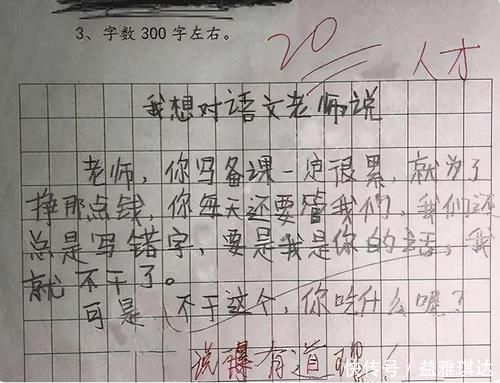 3、字数300字左右。
20
人才
我想对语文老师说
老师，你写备课一定很累，就为了
挣那点钱，你每天还要管我们，我们还
总是写错字，要是我是你的话，我
就不干了。
可是，不干这个，你吃什么喔？
说得有道理！
快传号／益雅琪达